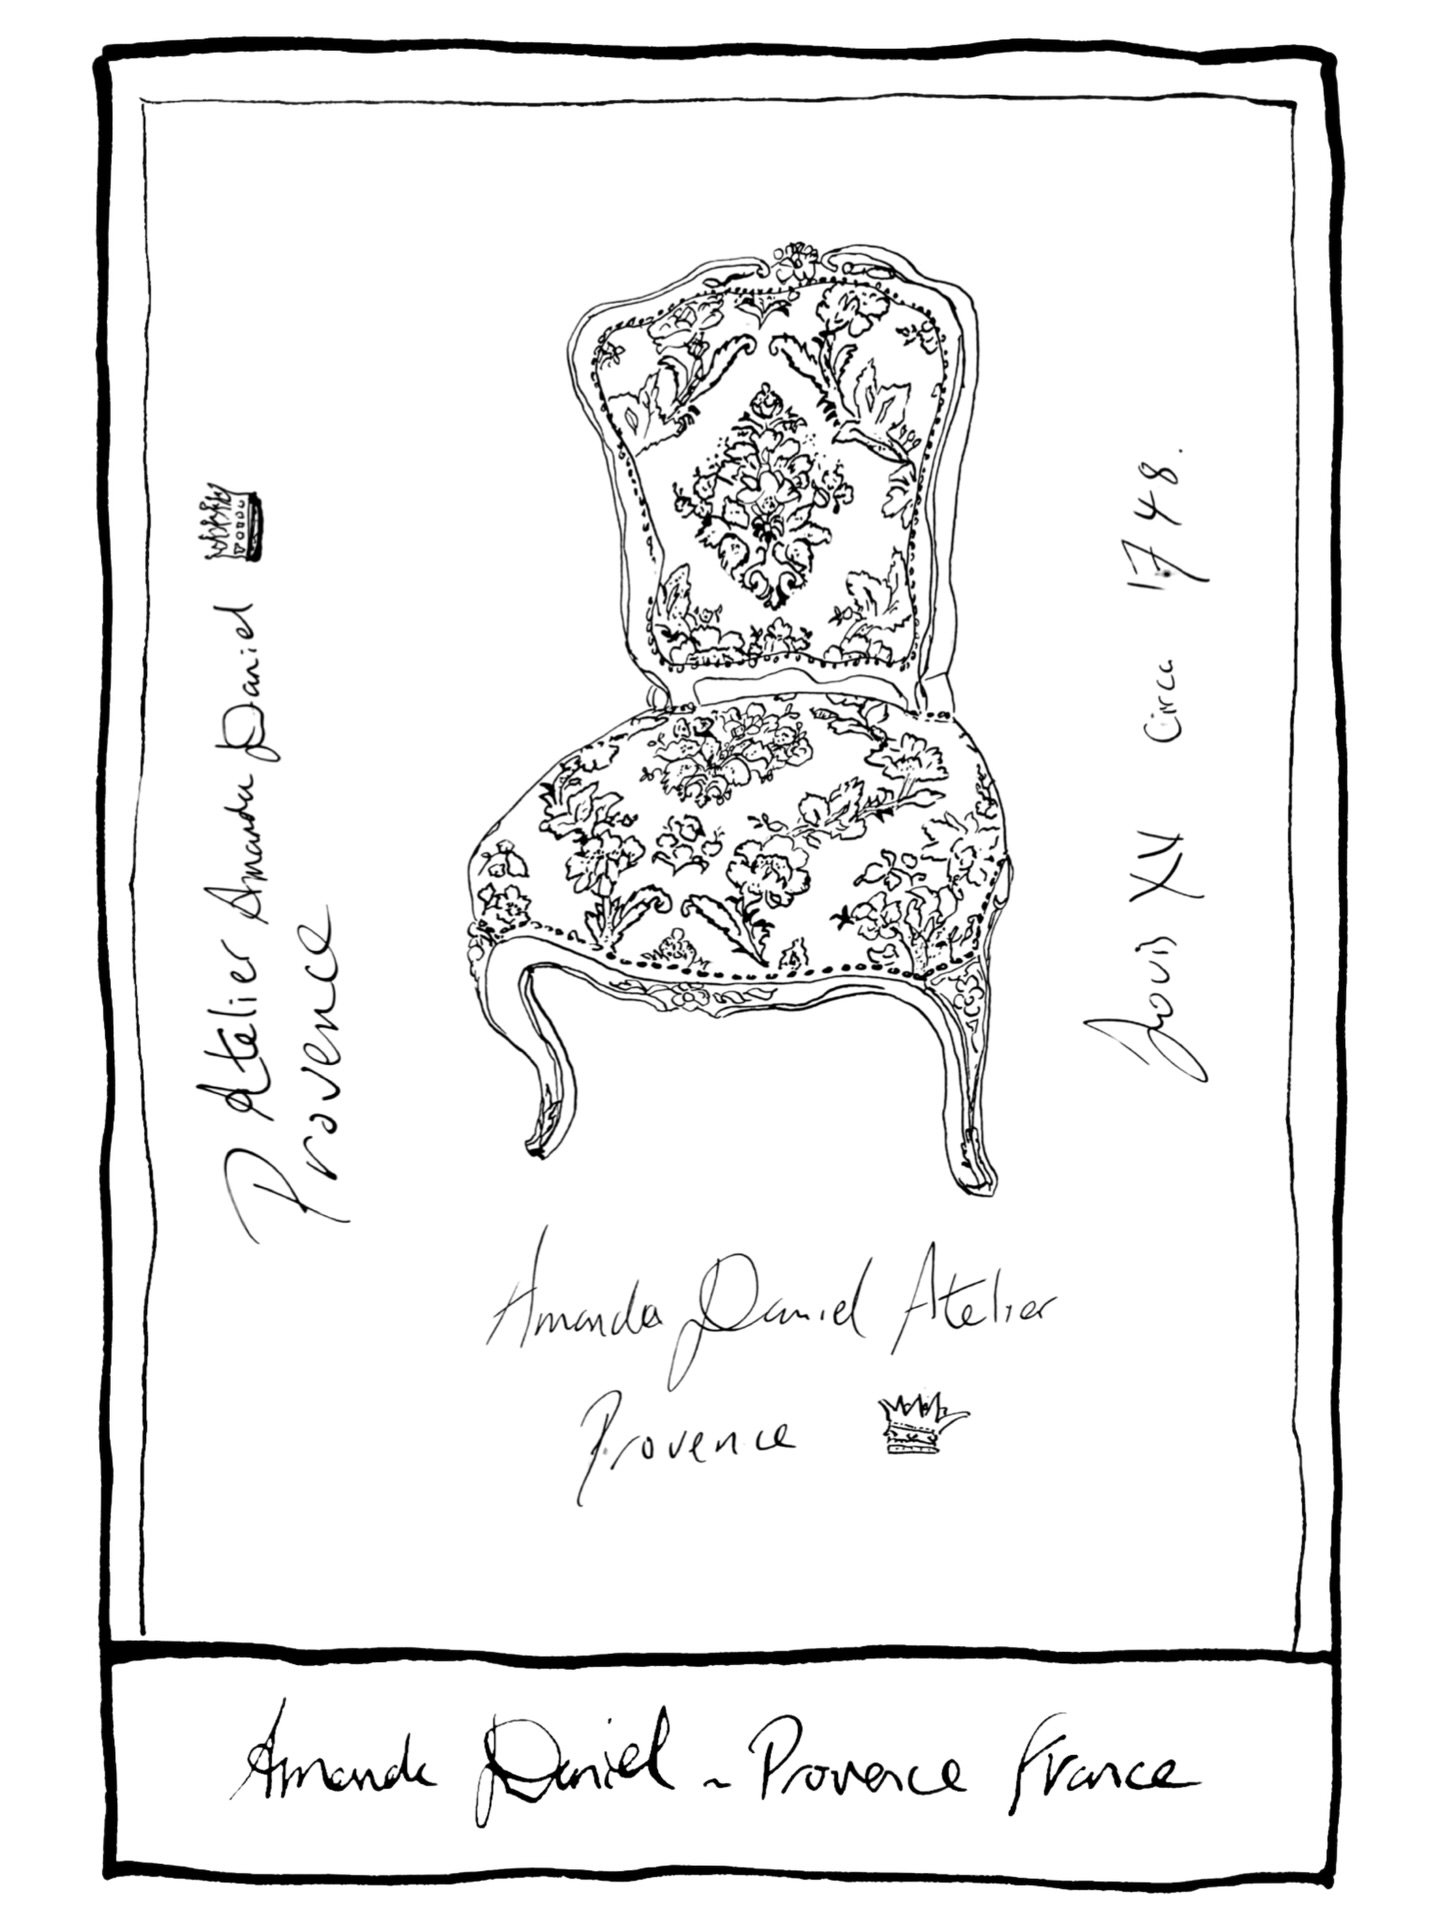 Atelier Amanda Daniel
Provence
Louis XV Circa 1748.
Amanda Daniel Atelier
Provence
Amanda Daniel ~ Provence France